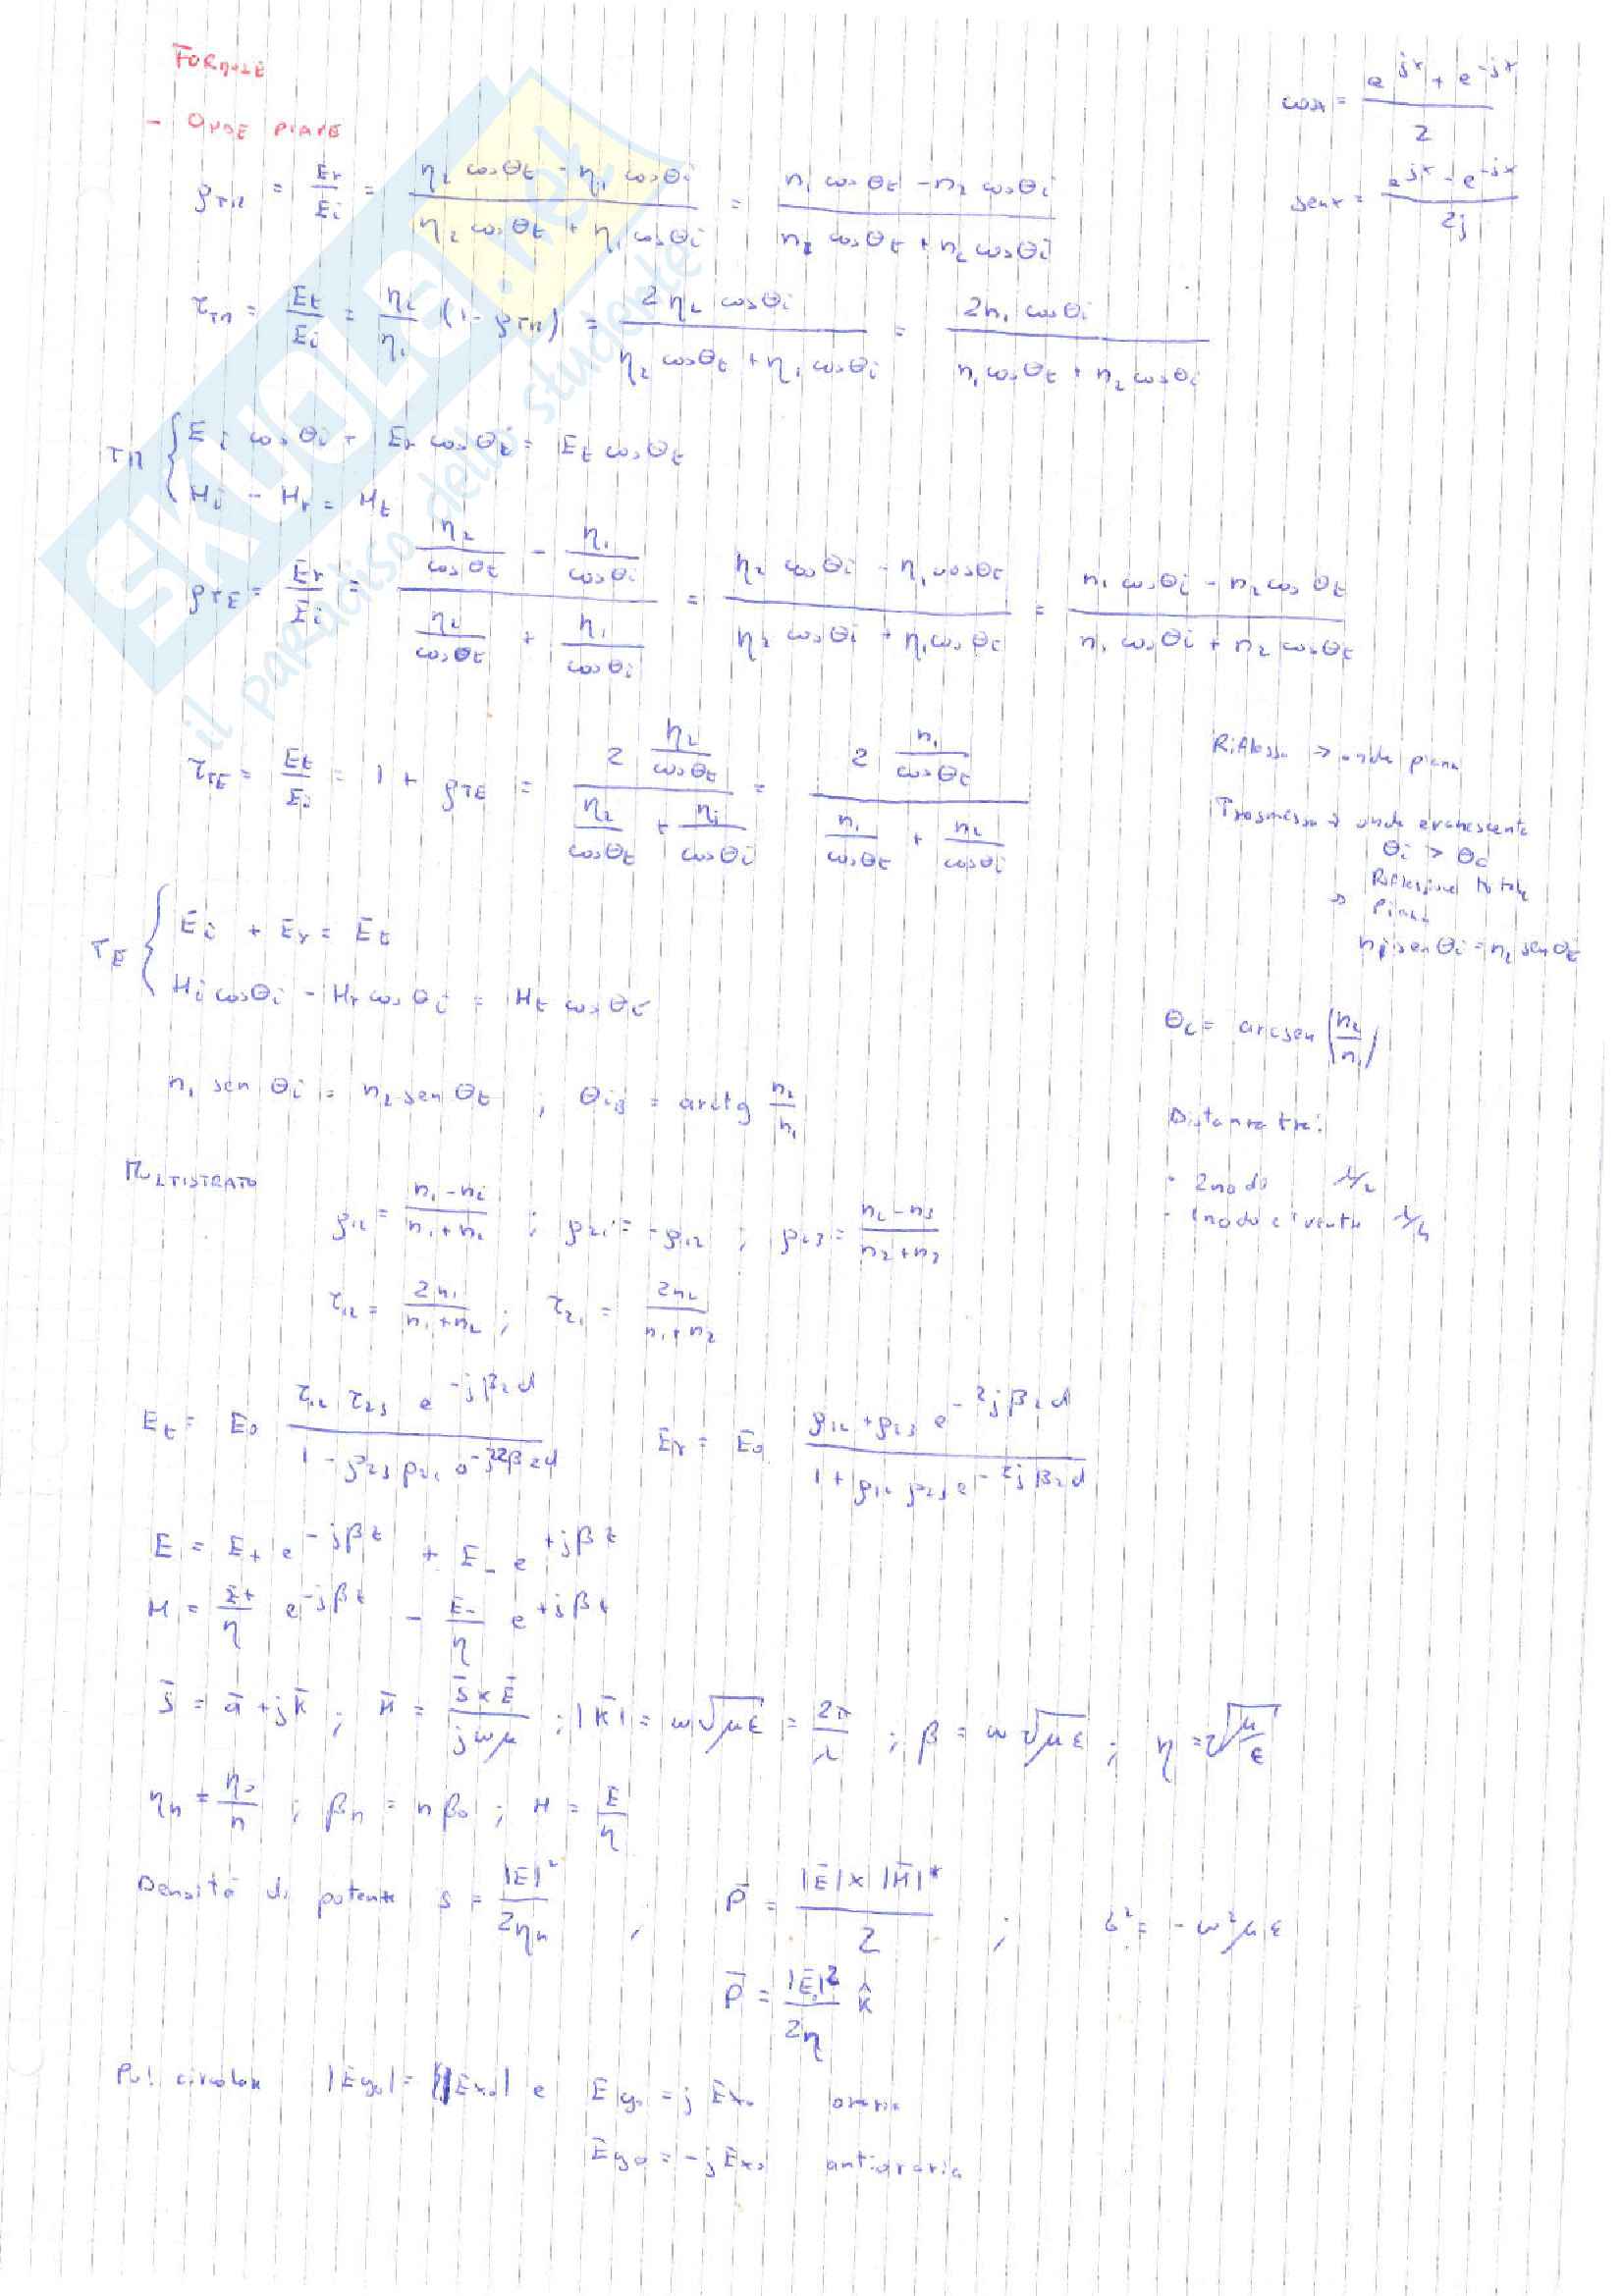 FORMULE
- ONDE PIANE
cosx = (e^{jx} + e^{-jx}) / 2
senx = (e^{jx} - e^{-jx}) / 2j
ρ_TM = Er/Ei = (η2 cosθt - η1 cosθi) / (η2 cosθt + η1 cosθi) = (n1 cosθt - n2 cosθi) / (n2 cosθt + n2 cosθi)
τ_TM = Et/Ei = η2/η1 (1 - ρ_TM) = 2η2 cosθi / (η2 cosθt + η1 cosθi) = 2n1 cosθi / (n1 cosθt + n2 cosθi)
TM { Ei cosθi + Er cosθi = Et cosθt
Hi - Hr = Ht
ρ_TE = Er/Ei = (η2/cosθt - η1/cosθi) / (η2/cosθt + η1/cosθi) = (η2 cosθi - η1 cosθt) / (η2 cosθi + η1 cosθt) = (n1 cosθi - n2 cosθt) / (n1 cosθi + n2 cosθt)
τ_TE = Et/Ei = 1 + ρ_TE = (2 η2/cosθt) / (η2/cosθt + η1/cosθi) = (2 n1/cosθt) / (n1/cosθt + n2/cosθi)
Riflessa → onda piana
Trasmessa → onda evanescente
θi > θc
→ Riflessione totale
piana
n1 senθi = n2 senθt
TE { Ei + Er = Et
Hi cosθi - Hr cosθi = Ht cosθt
θc = arcsen (n2/n1)
n1 sen θi = n2 sen θt ; θiB = arctg n2/n1
Distanza tra:
- 2 nodo λ/2
- 1 nodo e 1 ventre λ/4
MULTISTRATO
ρ12 = (n1 - n2) / (n1 + n2) ; ρ21 = -ρ12 ; ρ23 = (n2 - n3) / (n2 + n3)
τ12 = 2n1 / (n1 + n2) ; τ21 = 2n2 / (n1 + n2)
Et = E0 (τ12 τ23 e^{-jβ2d}) / (1 - ρ23 ρ21 e^{-j2β2d}) Er = E0 (ρ12 + ρ23 e^{-2jβ2d}) / (1 + ρ12 ρ23 e^{-2jβ2d})
E = E+ e^{-jβz} + E- e^{+jβz}
H = E+/η e^{-jβz} - E-/η e^{+jβz}
S̄ = ā + jk̄ ; H̄ = S̄ x Ē / jωμ ; |k̄| = ω√με = 2π/λ ; β = ω√με ; η = √(μ/ε)
ηn = η0/n ; βn = nβ0 ; H = E/η
Densità di potenza S = |E|² / 2ηn ; P̄ = |Ē| x |H̄|* / 2 ; S² = -ω²με
P̄ = |E0|² / 2η k̂
Pol. circolare |Ey0| = |Ex0| e Ey0 = jEx0 oraria
Ey0 = -jEx0 antioraria
SKUOLA.net
il paradiso dello studente